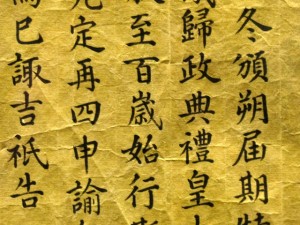 冬頒朔屆期特
歸政典禮皇
至百歲始行
定再四申諭
巳諏吉祗告